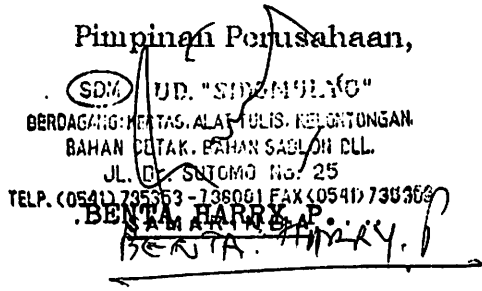 Pimpinan Perusahaan,
SDM UD. "SIDOMULYO"
BERDAGANG: KERTAS, ALAT TULIS, KELONTONGAN
BAHAN CETAK, BAHAN SABLON DLL.
JL. Dr. SUTOMO No. 25
TELP. (0541) 735353 - 736001 FAX (0541)
SAMARINDA
BENTA HARRY P.
BENTA. HARRY. P